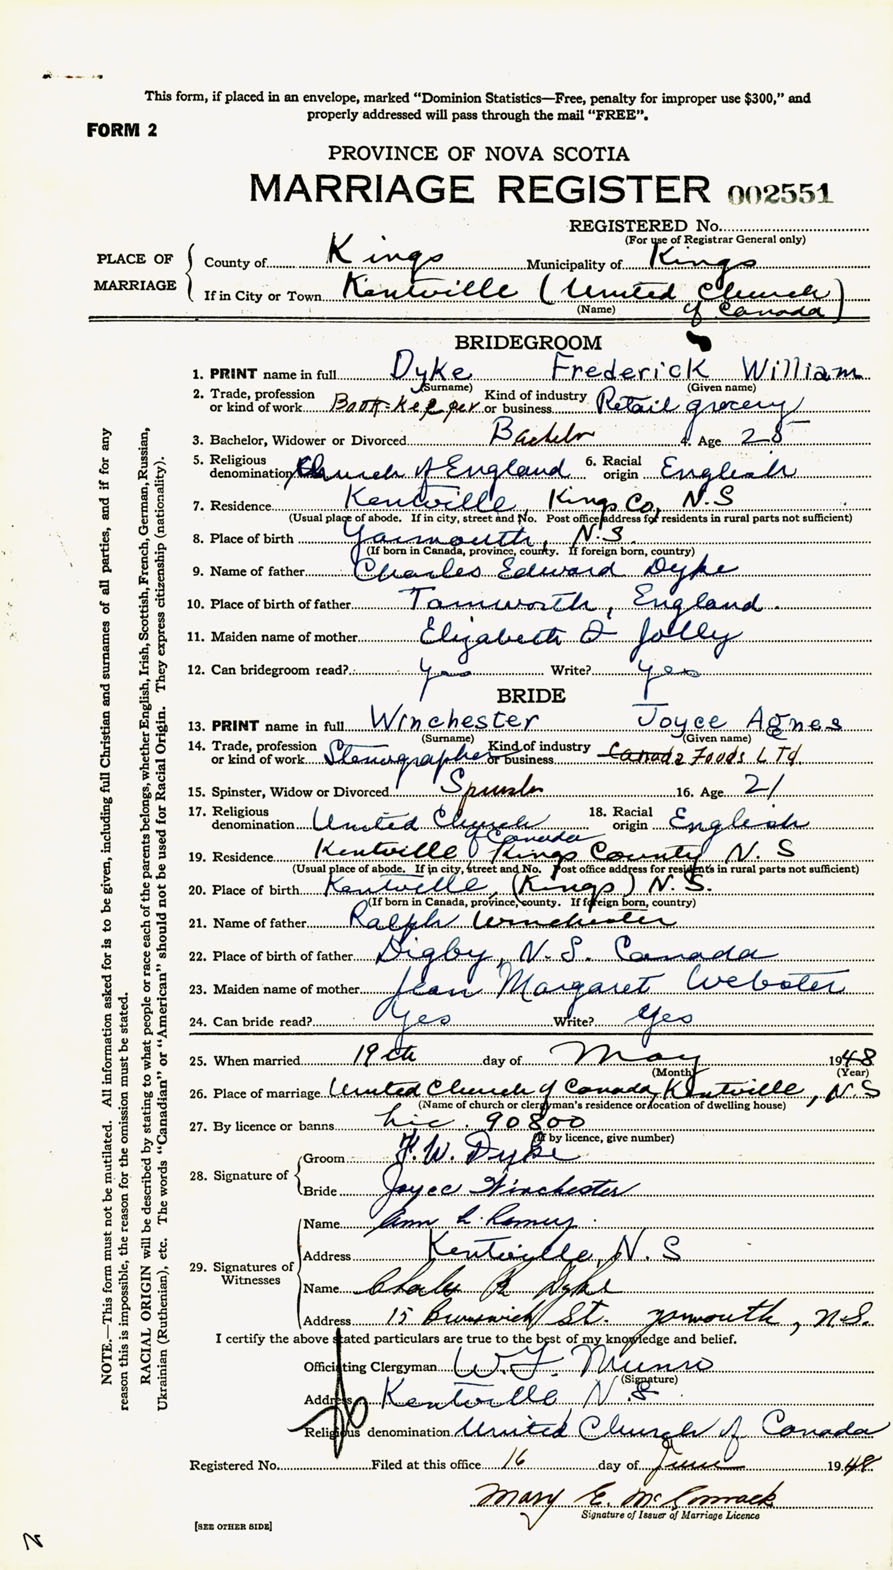 This form, if placed in an envelope, marked “Dominion Statistics—Free, penalty for improper use $300,” and
properly addressed will pass through the mail “FREE”.
FORM 2
PROVINCE OF NOVA SCOTIA
MARRIAGE REGISTER 002551
REGISTERED No.
(For use of Registrar General only)
PLACE OF MARRIAGE
County of Kings Municipality of Kings
If in City or Town Kentville (United Church of Canada)
(Name)
BRIDEGROOM
1. PRINT name in full Dyke Frederick William
(Surname) (Given name)
2. Trade, profession or kind of work Book-keeper Kind of industry or business Retail grocery
3. Bachelor, Widower or Divorced Bachelor 4. Age 25
5. Religious denomination Church of England 6. Racial origin English
7. Residence Kentville, Kings Co, N.S
(Usual place of abode. If in city, street and No. Post office address for residents in rural parts not sufficient)
8. Place of birth Yarmouth, N.S.
(If born in Canada, province, county. If foreign born, country)
9. Name of father Charles Edward Dyke
10. Place of birth of father Tamworth, England.
11. Maiden name of mother Elizabeth Jolly
12. Can bridegroom read? yes Write? yes
BRIDE
13. PRINT name in full Winchester Joyce Agnes
(Surname) (Given name)
14. Trade, profession or kind of work Stenographer Kind of industry or business Canada Foods LTd
15. Spinster, Widow or Divorced Spinster 16. Age 21
17. Religious denomination United Church of Canada 18. Racial origin English
19. Residence Kentville Kings County N. S
(Usual place of abode. If in city, street and No. Post office address for residents in rural parts not sufficient)
20. Place of birth Kentville, (Kings) N.S.
(If born in Canada, province, county. If foreign born, country)
21. Name of father Ralph Winchester
22. Place of birth of father Digby, N. S. Canada
23. Maiden name of mother Jean Margaret Webster
24. Can bride read? Yes Write? Yes
25. When married 19th day of May 1948
(Month) (Year)
26. Place of marriage United Church of Canada, Kentville, N.S
(Name of church or clergyman's residence or location of dwelling house)
27. By licence or banns Lic. 90800
(If by licence, give number)
28. Signature of
Groom F. W. Dyke
Bride Joyce Winchester
29. Signatures of Witnesses
Name Ann L.
Address Kentville, N. S
Name Charles Dyke
Address 15 Brunswick St. Yarmouth, N.S.
I certify the above stated particulars are true to the best of my knowledge and belief.
Officiating Clergyman Munro
(Signature)
Address Kentville, N. S.
Religious denomination United Church of Canada
Registered No. Filed at this office 16 day of June 1948
Mary E. McCormack
Signature of Issuer of Marriage Licence
[SEE OTHER SIDE]
NOTE.—This form must not be mutilated. All information asked for is to be given, including full Christian and surnames of all parties, and if for any
reason this is impossible, the reason for the omission must be stated.
RACIAL ORIGIN will be described by stating to what people or race each of the parents belongs, whether English, Irish, Scottish, French, German, Russian,
Ukrainian (Ruthenian), etc. The words “Canadian” or “American” should not be used for Racial Origin. They express citizenship (nationality).